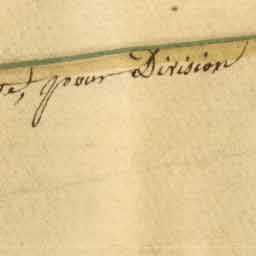 pour Division